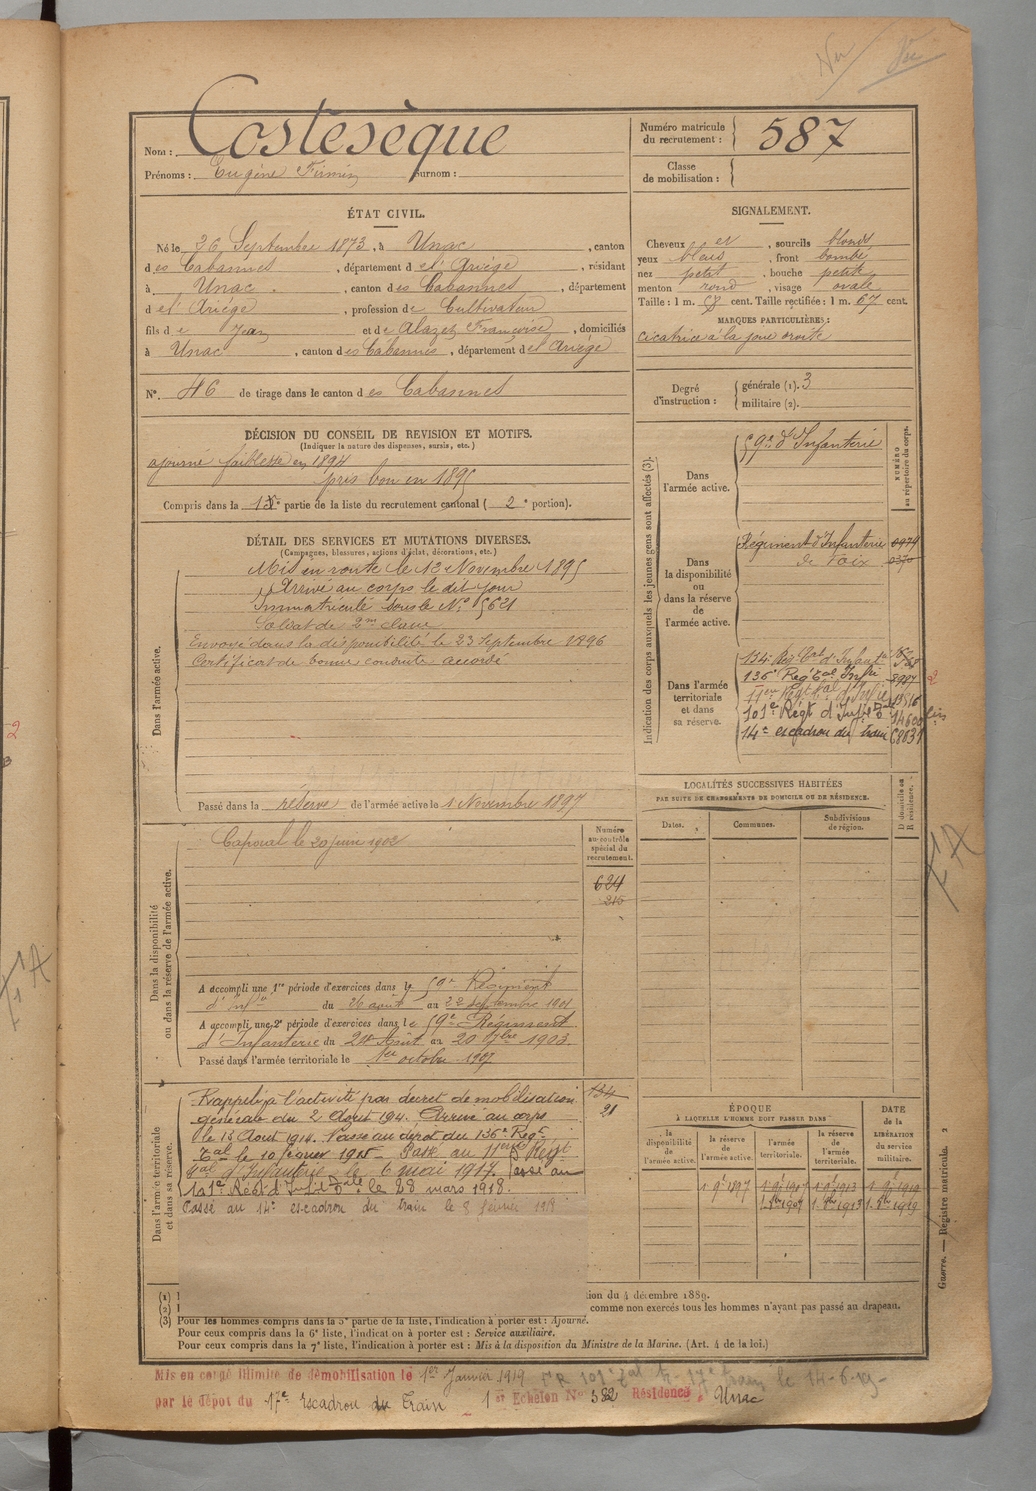 Nom : Costesèque
Prénoms : Eugène Firmin Surnom :
Numéro matricule du recrutement : 587
Classe de mobilisation :
ÉTAT CIVIL.
Né le 26 Septembre 1873, à Unac, canton
des Cabannes, département de l'Ariège, résidant
à Unac, canton des Cabannes, département
de l'Ariège, profession de Cultivateur
fils de Jean et de Alazet Françoise, domiciliés
à Unac, canton des Cabannes, département de l'Ariège
N° 46 de tirage dans le canton des Cabannes
SIGNALEMENT.
Cheveux et, sourcils blonds
yeux bleus, front bombé
nez petit, bouche petite
menton rond, visage ovale
Taille : 1 m. cent. Taille rectifiée : 1 m. 67 cent.
MARQUES PARTICULIÈRES :
cicatrice à la joue droite
Degré d'instruction : générale (1). 3
militaire (2).
DÉCISION DU CONSEIL DE REVISION ET MOTIFS.
(Indiquer la nature des dispenses, sursis, etc.)
ajourné faiblesse en 1894
pris bon en 1895
Compris dans la partie de la liste du recrutement cantonal ( 2e portion).
DÉTAIL DES SERVICES ET MUTATIONS DIVERSES.
(Campagnes, blessures, actions d'éclat, décorations, etc.)
Dans l'armée active.
Mis en route le 12 Novembre 1895
Arrivé au corps le dit jour
Immatriculé sous le No 5621
Soldat de 2me classe
Envoyé dans la disponibilité le 23 Septembre 1896
Certificat de bonne conduite accordé
Passé dans la réserve de l'armée active le 1 Novembre 1897
Indication des corps auxquels les jeunes gens sont affectés (3).
NUMÉRO au répertoire du corps.
Dans l'armée active.
59e d'Infanterie
Dans la disponibilité ou dans la réserve de l'armée active.
Régiment d'Infanterie
de Foix
Dans l'armée territoriale et dans sa réserve.
134e Rég. Eal d'Infanterie
136e Reg Eal Infie
11eme Régt Eal d'Infie
101e Régt d'Infie Eale
14e escadron du train
LOCALITÉS SUCCESSIVES HABITÉES
PAR SUITE DE CHANGEMENTS DE DOMICILE OU DE RÉSIDENCE.
Dates. Communes. Subdivisions de région.
D domicile ou R résidence.
Dans la disponibilité ou dans la réserve de l'armée active.
Caporal le 20 juin 1902
Numéro au contrôle spécial du recrutement.
624
215
A accompli une 1re période d'exercices dans le 59e Régiment
d'Infie du 26 août au 22 septembre 1901
A accompli une 2e période d'exercices dans le 59e Régiment
d'Infanterie du Août au 20 7bre 1903.
Passé dans l'armée territoriale le 1er octobre 1907
Dans l'armée territoriale et dans sa réserve.
Rappelé à l'activité par décret de mobilisation
générale du 2 Août 1914. Arrivé au corps
le 13 Août 1914. Passé au dépôt du 136e Regt
Eal le 10 février 1915 Passé au 11eme Régt
Eal d'Infanterie le 6 mai 1917. Passé au
101e Régt d'Infie Eale le 28 mars 1918.
Passé au 14e escadron du train le 8 février 1918
134
21
ÉPOQUE
À LAQUELLE L'HOMME DOIT PASSER DANS
DATE de la LIBÉRATION du service militaire.
la disponibilité de l'armée active. la réserve de l'armée active. l'armée territoriale. la réserve de l'armée territoriale.
(1)
(2)
ion du 4 décembre 1889.
comme non exercés tous les hommes n'ayant pas passé au drapeau.
(3) Pour les hommes compris dans la 5e partie de la liste, l'indication à porter est : Ajourné.
Pour ceux compris dans la 6e liste, l'indication à porter est : Service auxiliaire.
Pour ceux compris dans la 7e liste, l'indication à porter est : Mis à la disposition du Ministre de la Marine. (Art. 4 de la loi.)
Guerre. — Registre matricule. 2
Mis en congé illimité de démobilisation le 1er Janvier 1919
par le dépôt du 17e Escadron du Train 1er Echelon No 582 Résidence, Unac